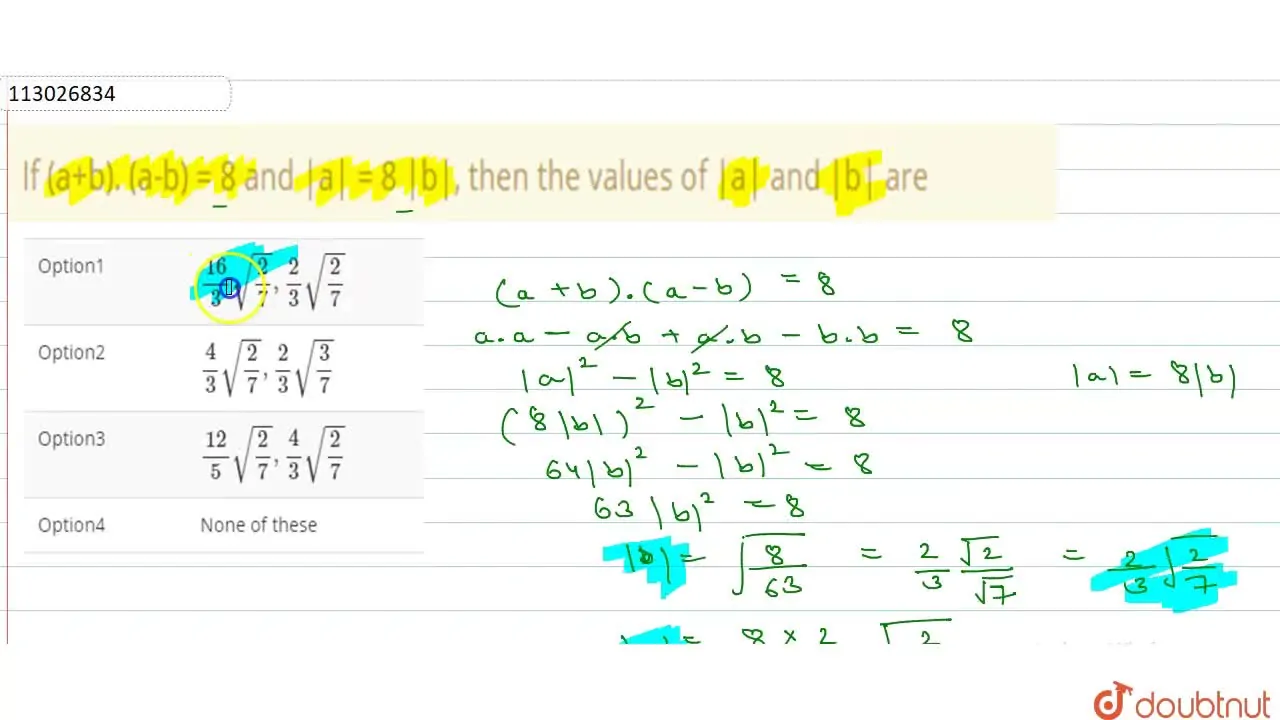 113026834
If (a+b). (a-b) = 8 and |a| = 8 |b|, then the values of |a| and |b| are
Option1 16/3 √(2/7), 2/3 √(2/7)
Option2 4/3 √(2/7), 2/3 √(3/7)
Option3 12/5 √(2/7), 4/3 √(2/7)
Option4 None of these
(a + b) . (a - b) = 8
a.a - a.b + a.b - b.b = 8
|a|² - |b|² = 8
|a| = 8|b|
(8|b|)² - |b|² = 8
64|b|² - |b|² = 8
63 |b|² = 8
|b| = √(8/63) = 2/3 √2/√7 = 2/3 √(2/7)
= 8 × 2 √2
doubtnut